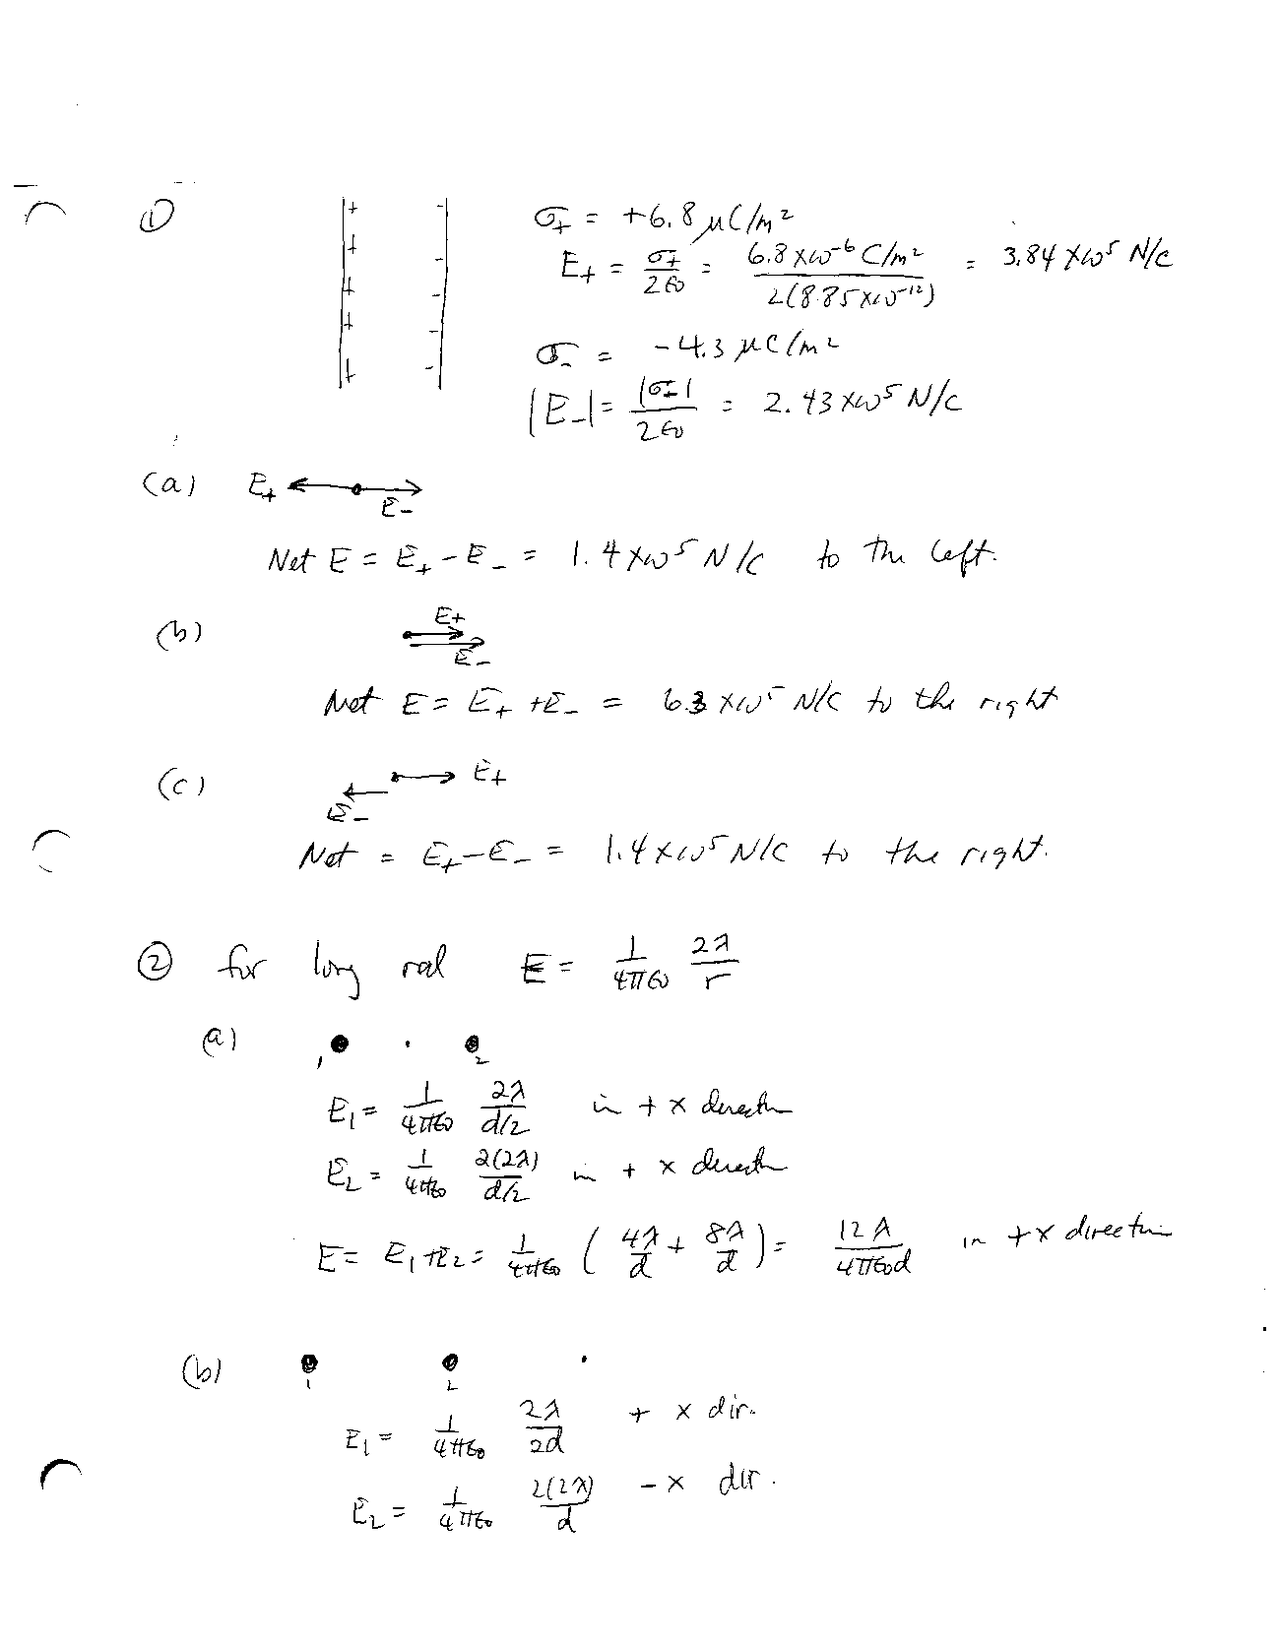 ① + - σ₊ = +6.8 μC/m²
+ - E₊ = σ₊/2ε₀ = 6.8×10⁻⁶ C/m² / 2(8.85×10⁻¹²) = 3.84×10⁵ N/C
+ -
+ - σ₋ = -4.3 μC/m²
+ - |E₋| = |σ₋|/2ε₀ = 2.43×10⁵ N/C
(a) E₊ E₋
Net E = E₊ - E₋ = 1.4×10⁵ N/C to the left.
(b) E₊ E₋
Net E = E₊ + E₋ = 6.3×10⁵ N/C to the right
(c) E₊ E₋
Net = E₊ - E₋ = 1.4×10⁵ N/C to the right.
② for long rod E = 1/4πε₀ 2λ/r
(a) 1 2
E₁ = 1/4πε₀ 2λ/d/2 in + x direction
E₂ = 1/4πε₀ 2(2λ)/d/2 in + x direction
E = E₁+E₂ = 1/4πε₀ (4λ/d + 8λ/d) = 12λ/4πε₀d in +x direction
(b) 1 2
E₁ = 1/4πε₀ 2λ/2d + x dir.
E₂ = 1/4πε₀ 2(2λ)/d - x dir.